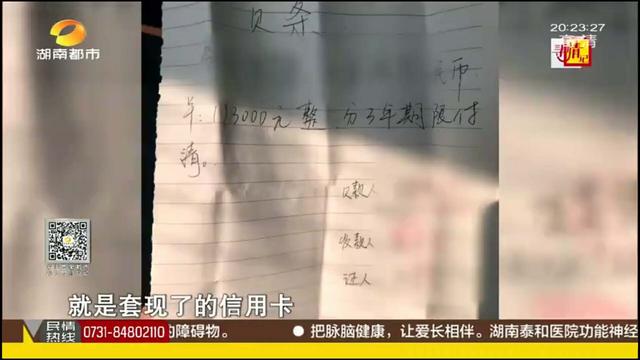 湖南都市
20:23:27
高清
寻情记
欠条
币
113000元整 分3年期限付
清。
欠款人
收款人
证人
就是套现了的信用卡
民情热线
0731-84802110
的障碍物。
把脉脑健康，让爱长相伴。湖南泰和医院功能神经